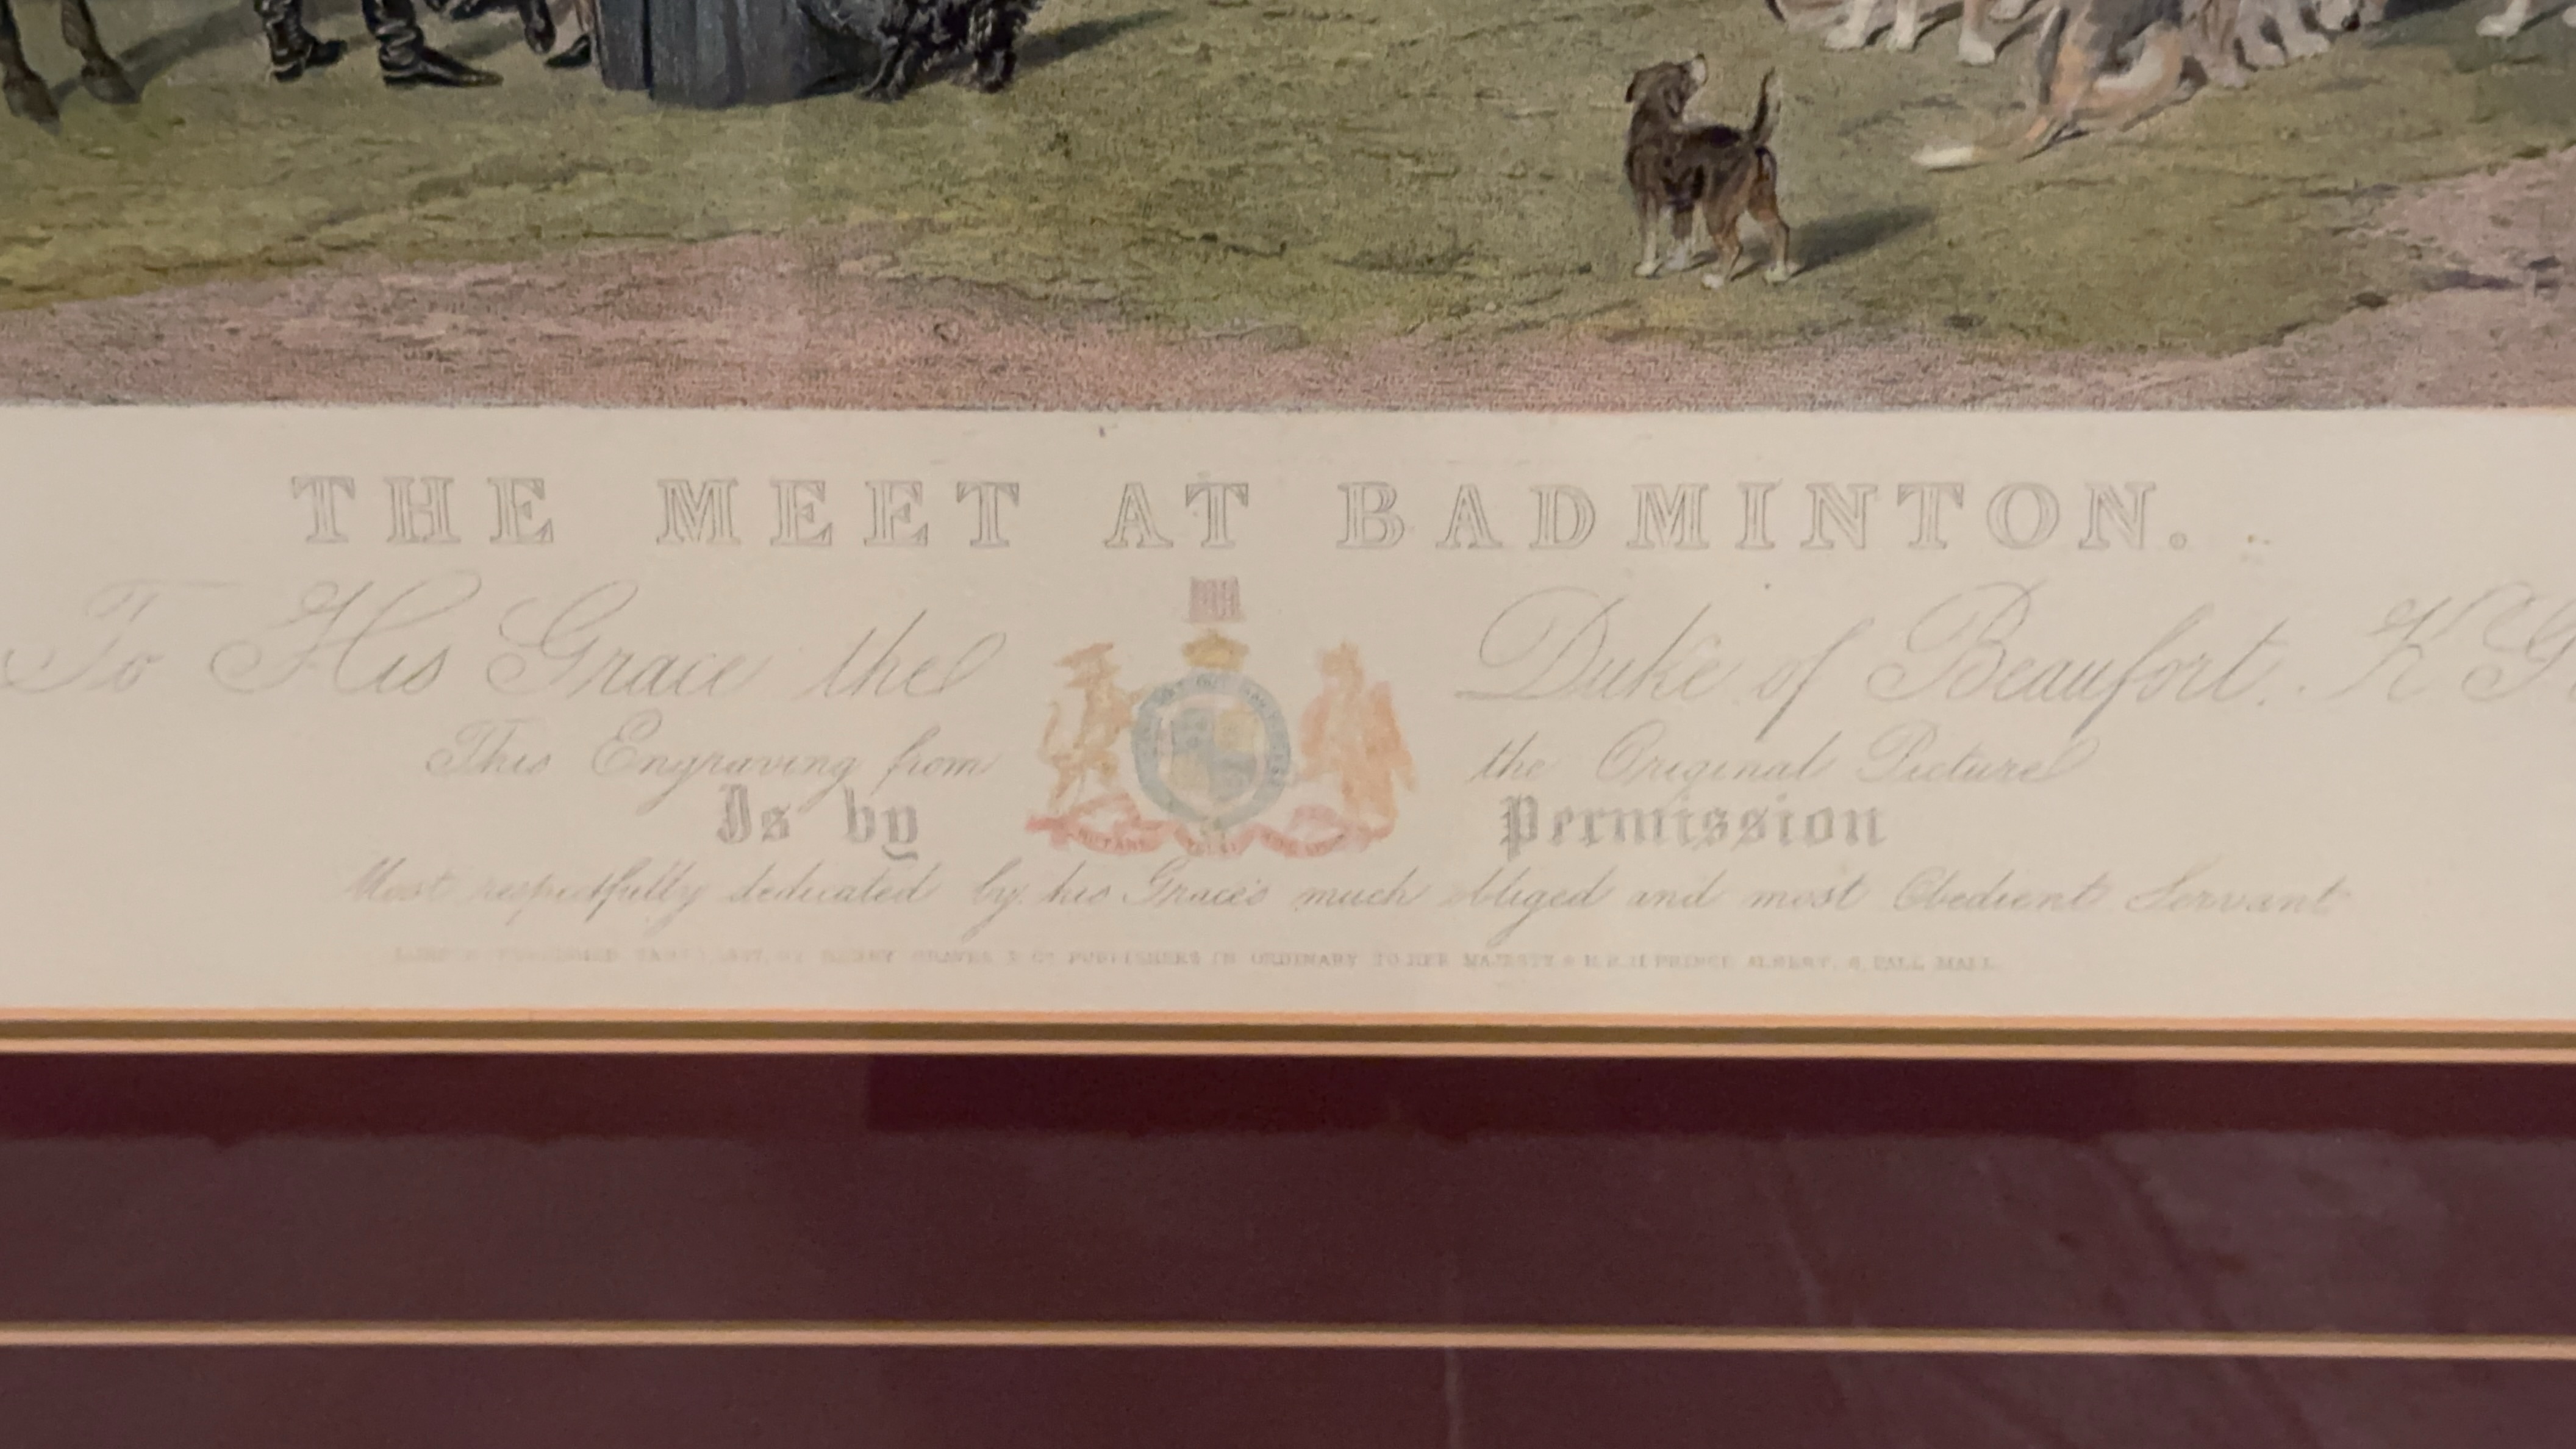 THE MEET AT BADMINTON.
To His Grace the Duke of Beaufort, K G.
This Engraving from the Original Picture
Is by Permission
Most respectfully dedicated by his Grace's much obliged and most Obedient Servant
PUBLISHED BY HENRY GRAVES & Co PUBLISHERS IN ORDINARY TO HER MAJESTY & H.R.H PRINCE ALBERT, 6, PALL MALL